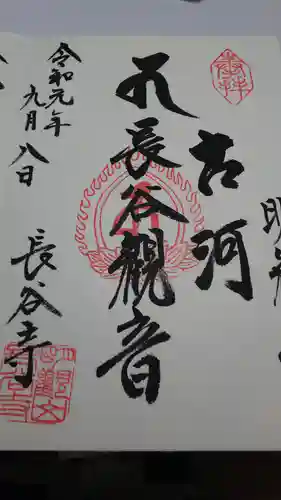 奉拝
古河
長谷観音
令和元年
九月八日
長谷寺